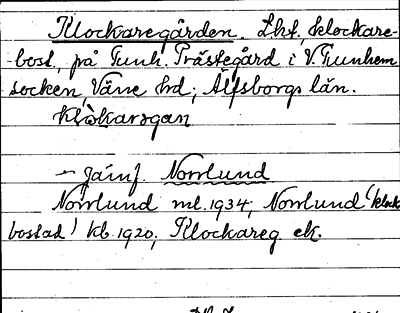 Klockaregården. Lht, klockare-
bost. på Tunh. Prästegård i V. Tunhem
socken Väne hd; Älfsborgs län.
klòkarsgan
– jämf. Norrlund
Norrlund ml. 1934, Norrlund (klock
bostad) kb. 1920, Klockareg. ek.